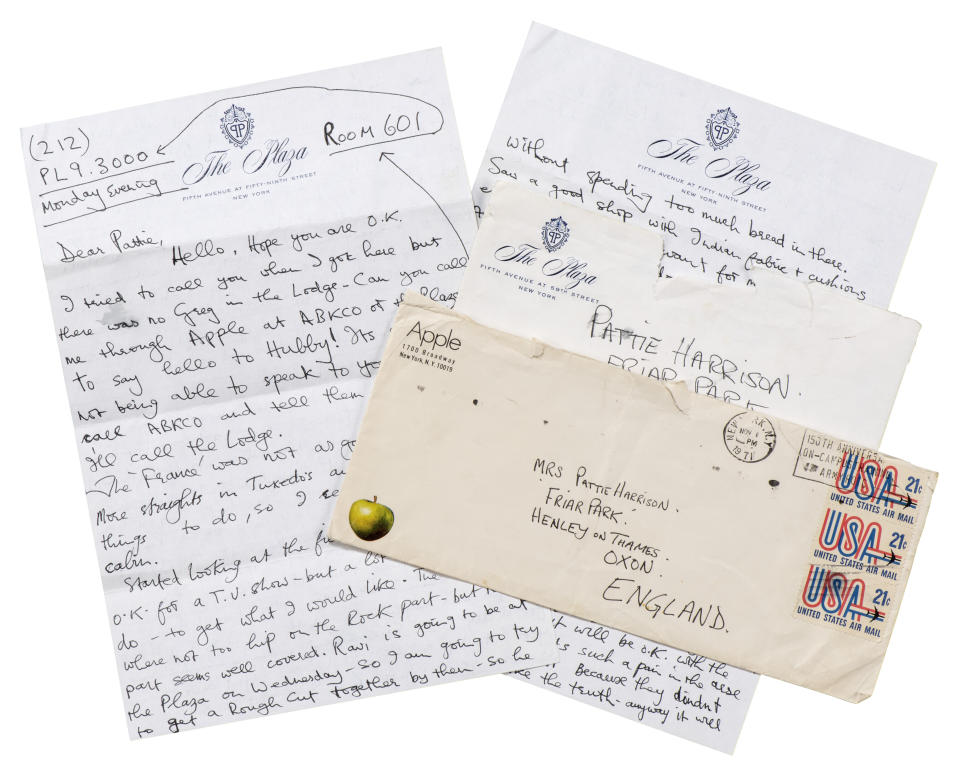 (212)
PL9.3000
Monday Evening
The Plaza
FIFTH AVENUE AT FIFTY-NINTH STREET
NEW YORK
ROOM 601
Dear Pattie,
Hello, Hope you are O.K.
I tried to call you when I got here but
there was no Greg in the Lodge - Can you call
me through Apple at ABKCO or the Plaza
to say hello to Hubby! Its
not being able to speak to you
call ABKCO and tell them
I'll call the Lodge.
The 'France' was not as
More straights in Tuxedo's
things to do, so I
cabin.
Started looking at the
O.K. for a T.V. show - but a lot
do - to get what I would like. The
where not too hip on the Rock part - but
part seems well covered. Ravi is going to be at
the Plaza on Wednesday - so I am going to try
to get a Rough Cut together by then - so he
The Plaza
FIFTH AVENUE AT FIFTY-NINTH STREET
NEW YORK
without spending too much bread in there.
Saw a good shop with Indian fabric + cushions
want for
it will be O.K. with the
is such a pain in the arse
Because they dindnt
the truth - anyway it will
The Plaza
FIFTH AVENUE AT 59th STREET
NEW YORK
PATTIE HARRISON.
FRIAR PARK
Apple
1700 Broadway
New York, N.Y. 10019
NEW YORK, N.Y.
NOV
PM
1971
150TH ANNIVERS
ON-CAMP
MRS PATTIE HARRISON.
'FRIAR PARK'
HENLEY ON THAMES.
OXON.
ENGLAND.
USA 21c
UNITED STATES AIR MAIL
USA 21c
UNITED STATES AIR MAIL
USA 21c
UNITED STATES AIR MAIL